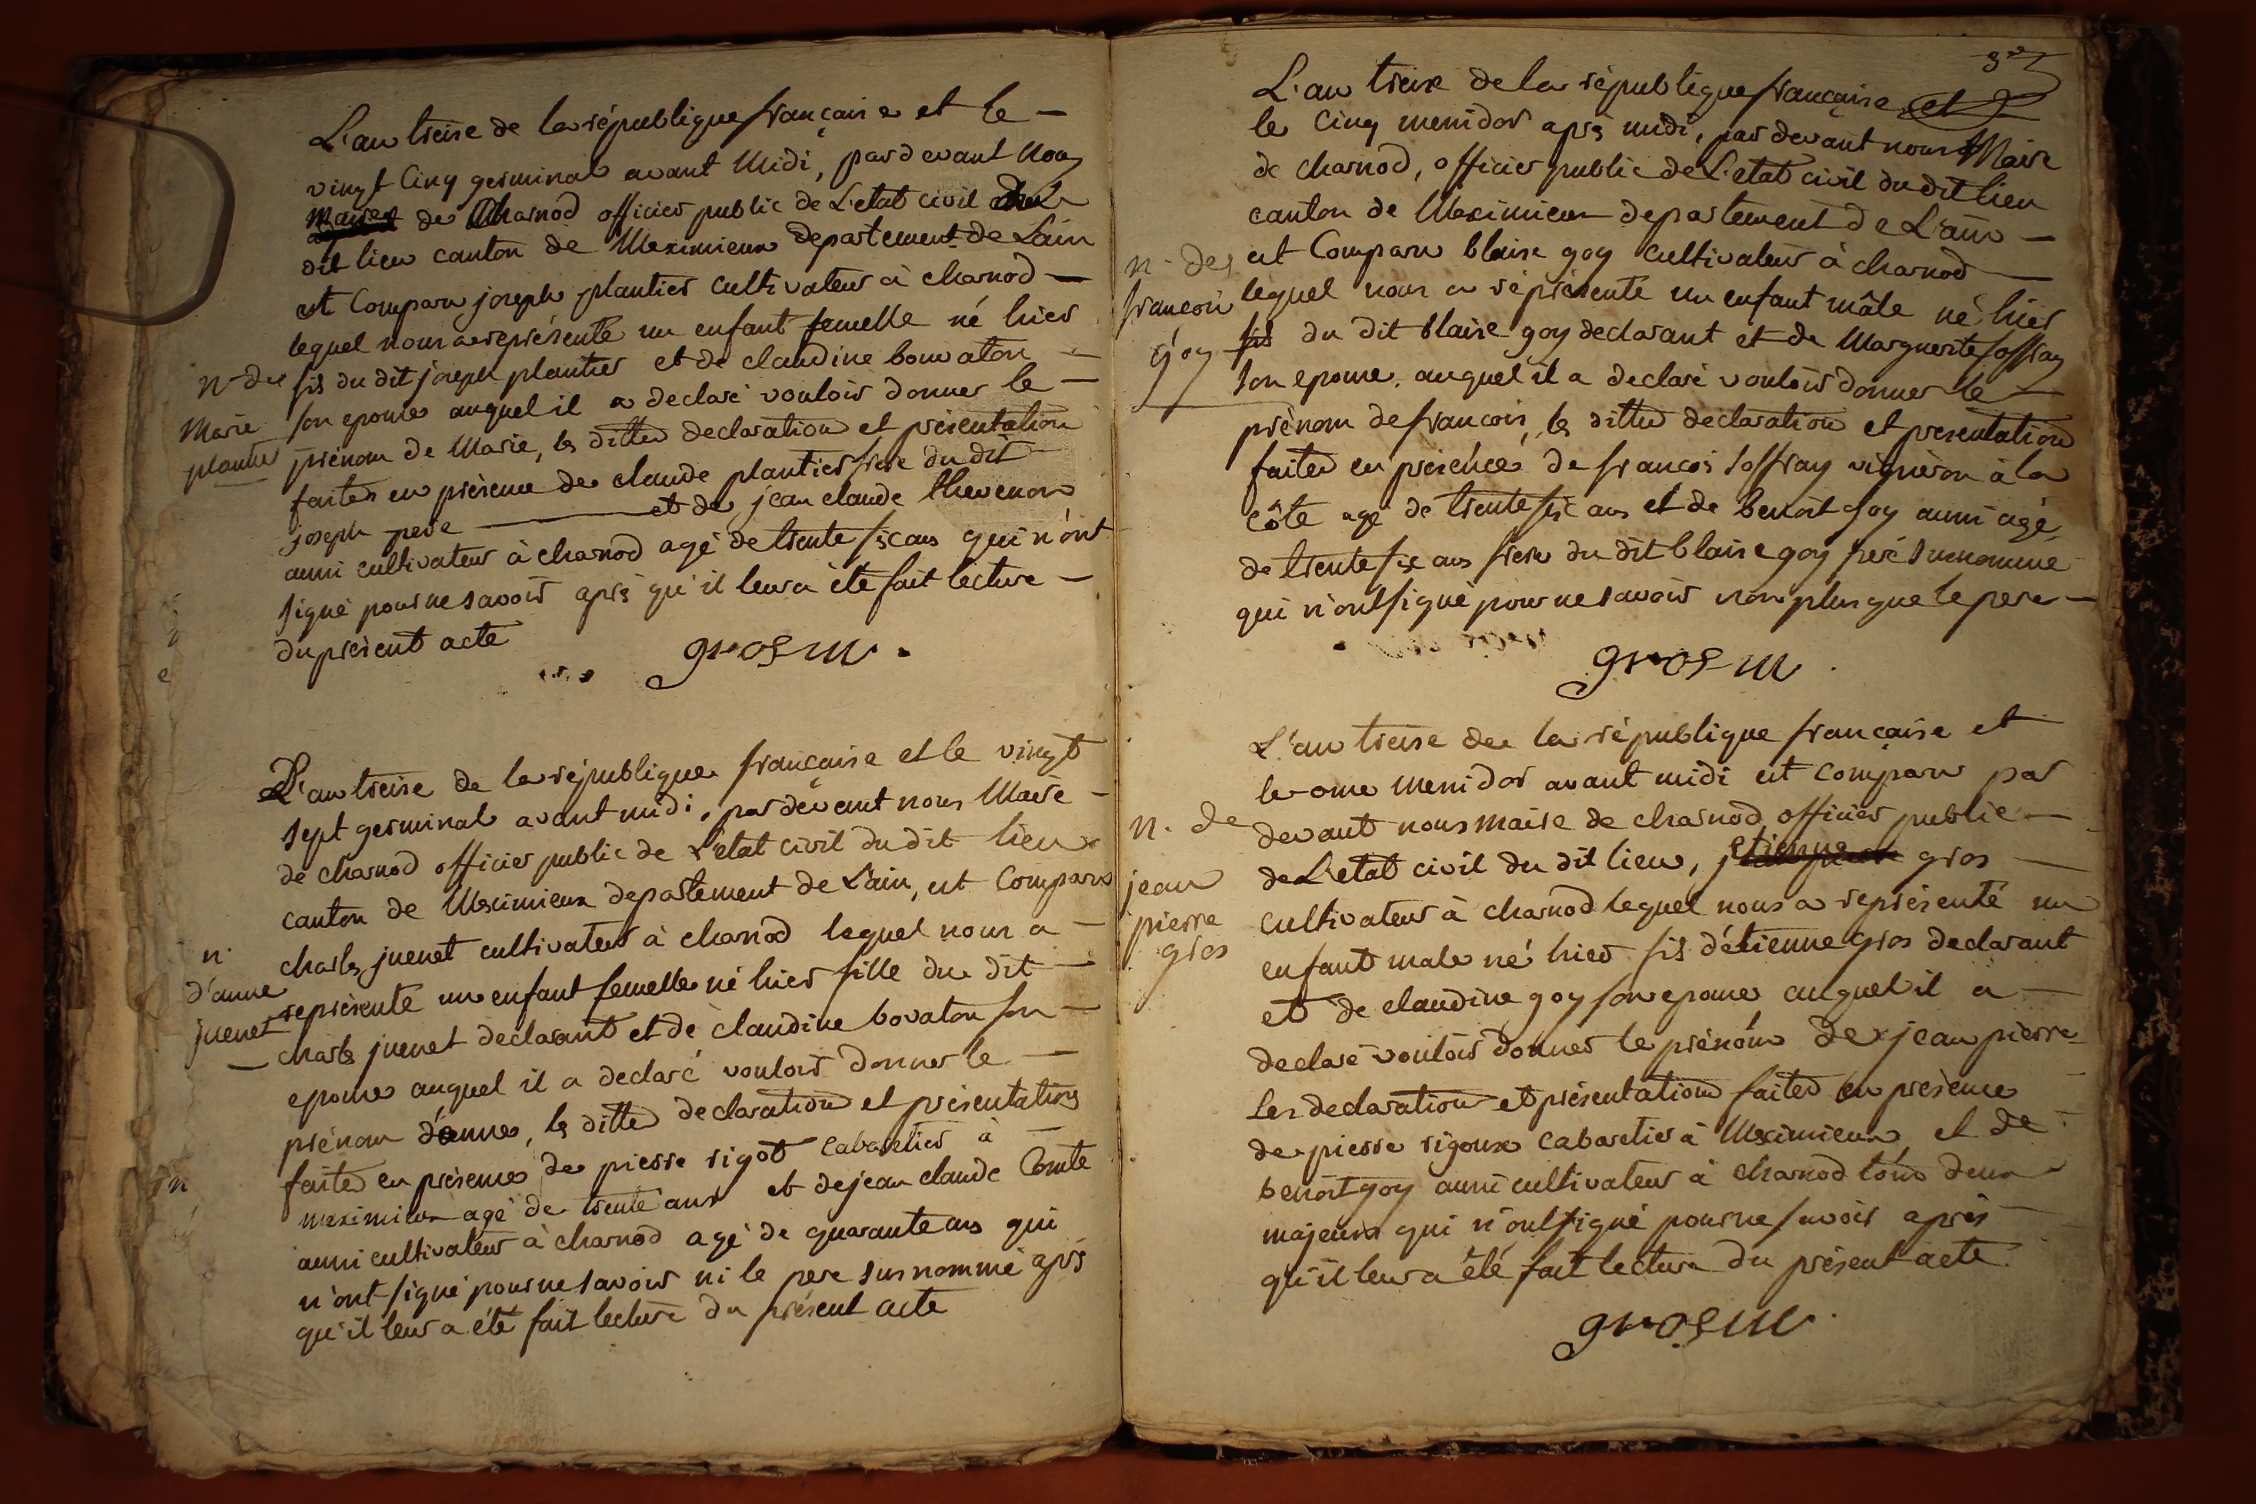 L'an treise de la république française et le
vingt cinq germinal avant midi, pardevant nous
maire de Charnod officier public de L'etat civil du
dit lieu canton de Meximieux departement de Lain
est comparu joseph plantier cultivateur à charnod
lequel nous a représenté un enfant femelle né hier
n. de fils du dit joseph plantier et de claudine bouvaton
Marie son epouse auquel il a declaré vouloir donner le
plantier prénom de Marie, les dittes declaration et présentation
faites en présence de claude plantier frere du dit
joseph pere et de jean claude thevenon
aussi cultivateur à charnod agé de trente six ans qui n'ont
signé pour ne savoir après qu'il leur a été fait lecture
du présent acte
gros m.
L'an treise de la république française et le vingt
sept germinal avant midi, pardevant nous Maire
de charnod officier public de L'etat civil du dit lieu
canton de Meximieux departement de L'ain, est comparu
charles juenet cultivateur à charnod lequel nous a
n. d'anne représenté un enfant femelle né hier fille du dit
juenet charles juenet declarant et de claudine bovaton son
epouse auquel il a declaré vouloir donner le
prénom d'anne, les dittes declaration et présentation
faites en présence de pierre rigot cabaretier à
meximieux agé de trente ans et de jean claude Comte
aussi cultivateur à charnod agé de quarante ans qui
n'ont signé pour ne savoir ni le pere surnommé après
qu'il leur a été fait lecture du présent acte
3e
L'an treise de la république française et
le cinq messidor après midi, pardevant nous Maire
de charnod, officier public de L'etat civil du dit lieu
canton de Meximieux departement de L'ain
n. de est comparu blaise goy cultivateur à charnod
francois lequel nous a représenté un enfant mâle né hier
goy fils du dit blaise goy declarant et de Marguerite soffray
son epouse, auquel il a declaré vouloir donner le
prénom de francois, les dittes declaration et presentation
faites en présence de francois soffray vigneron à la
côte agé de trente six ans et de benoit goy aussi agé
de trente six ans frere du dit blaise goy peré surnommé
qui n'ont signé pour ne savoir non plus que le pere
gros m.
L'an treise de la république française et
le onze messidor avant midi est comparu par
n. de devant nous maire de charnod officier public
de L'etat civil du dit lieu, etienne gros
jean cultivateur à charnod lequel nous a représenté un
pierre gros enfant male né hier fils d'étienne gros declarant
et de claudine goy son epouse auquel il a
declaré vouloir donner le prénom de jean pierre
Les declaration et présentation faites en présence
de pierre rigoux cabaretier à Meximieux et de
benoit goy aussi cultivateur à charnod tous deux
majeurs qui n'ont signé pour ne savoir après
qu'il leur a été fait lecture du présent acte
gros m.